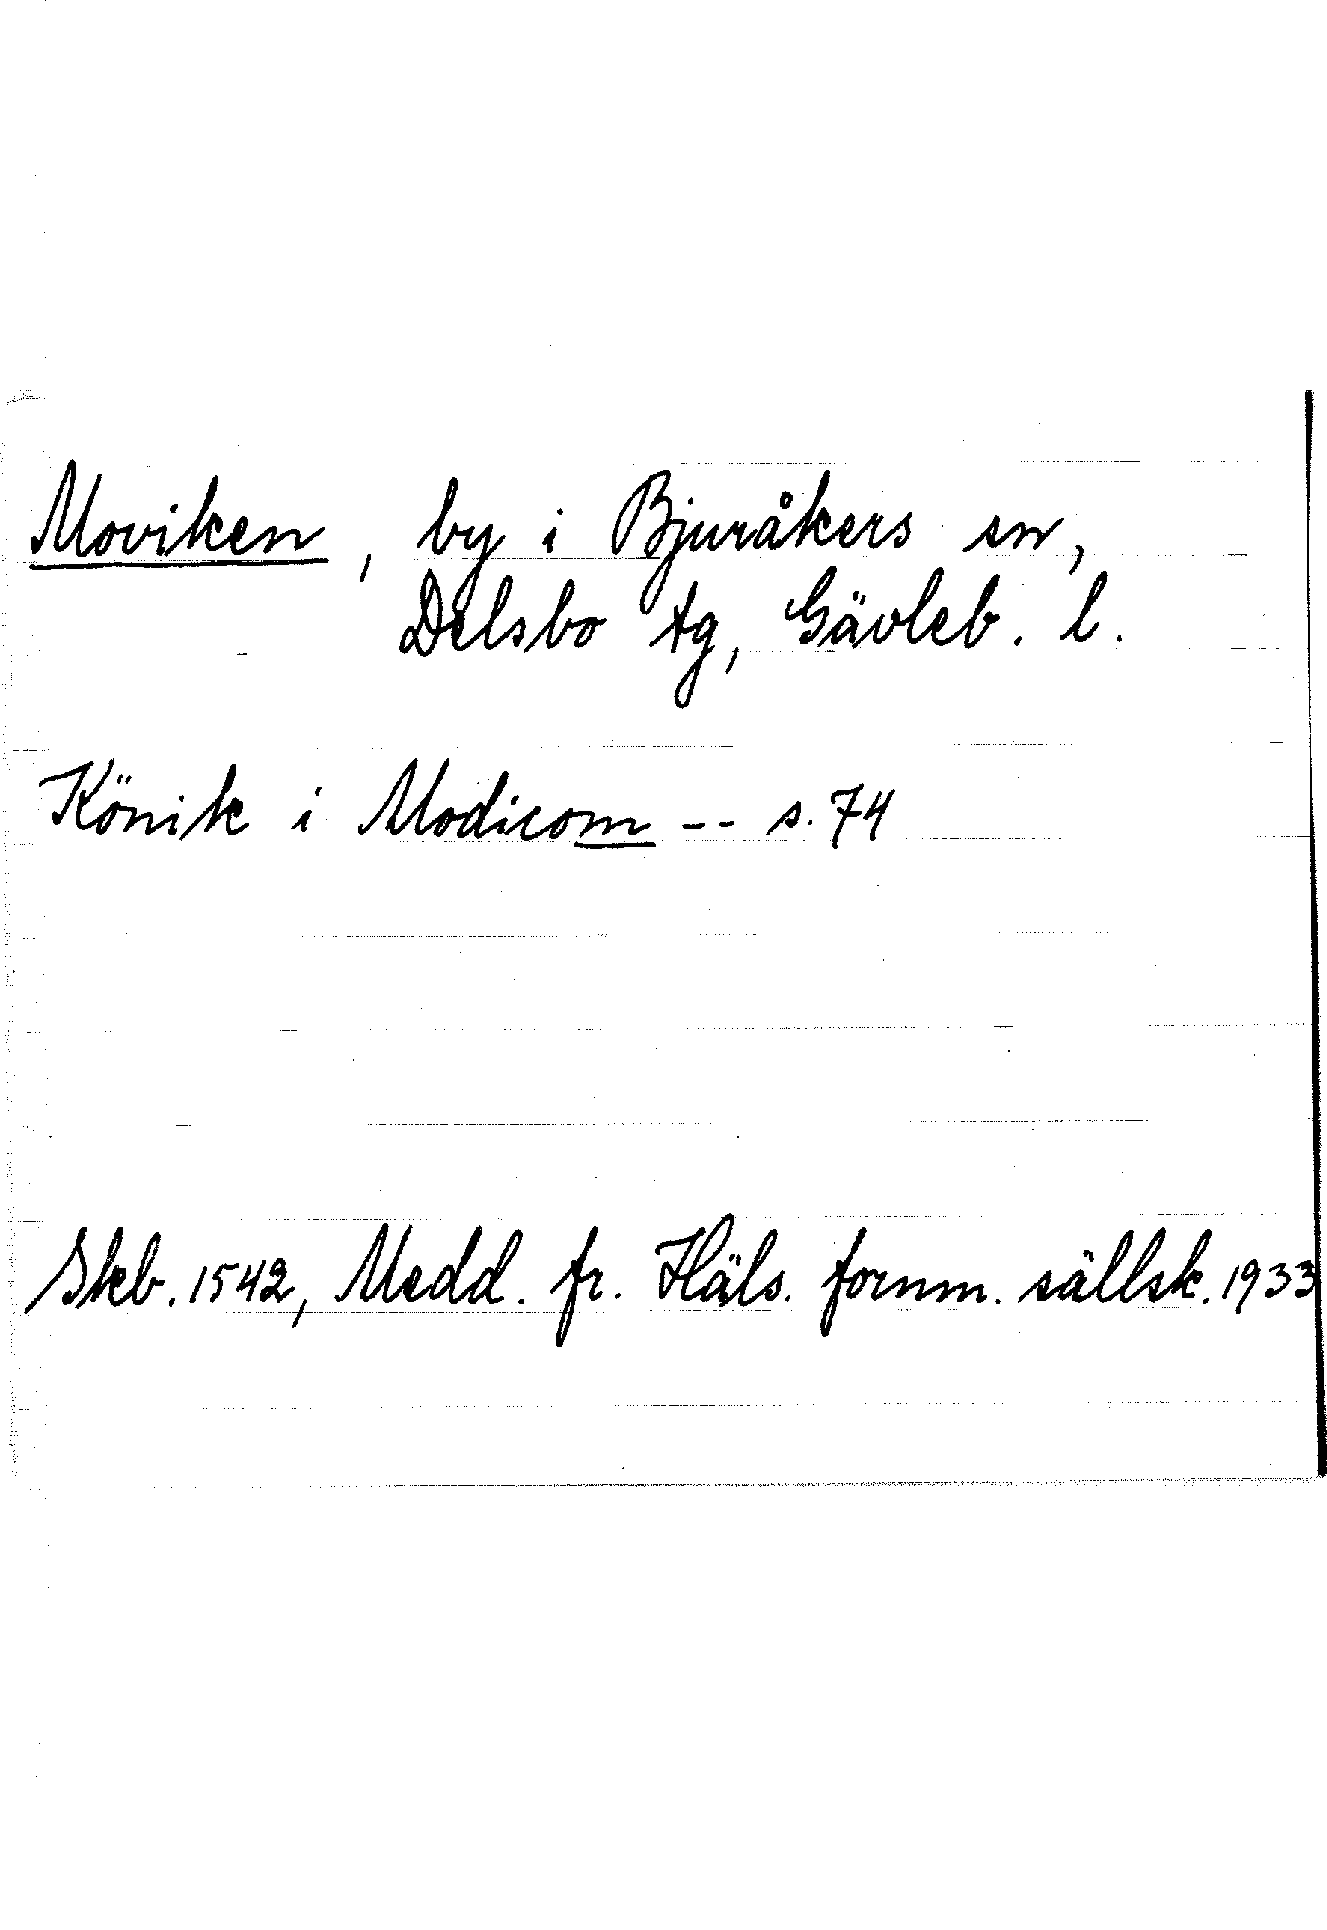 Moviken, by i Bjuråkers sn,
Delsbo tg, Gävleb. l.
Könik i Modicom -- s. 74
Skb. 1542, Medd. fr. Häls. fornm. sällsk. 1933